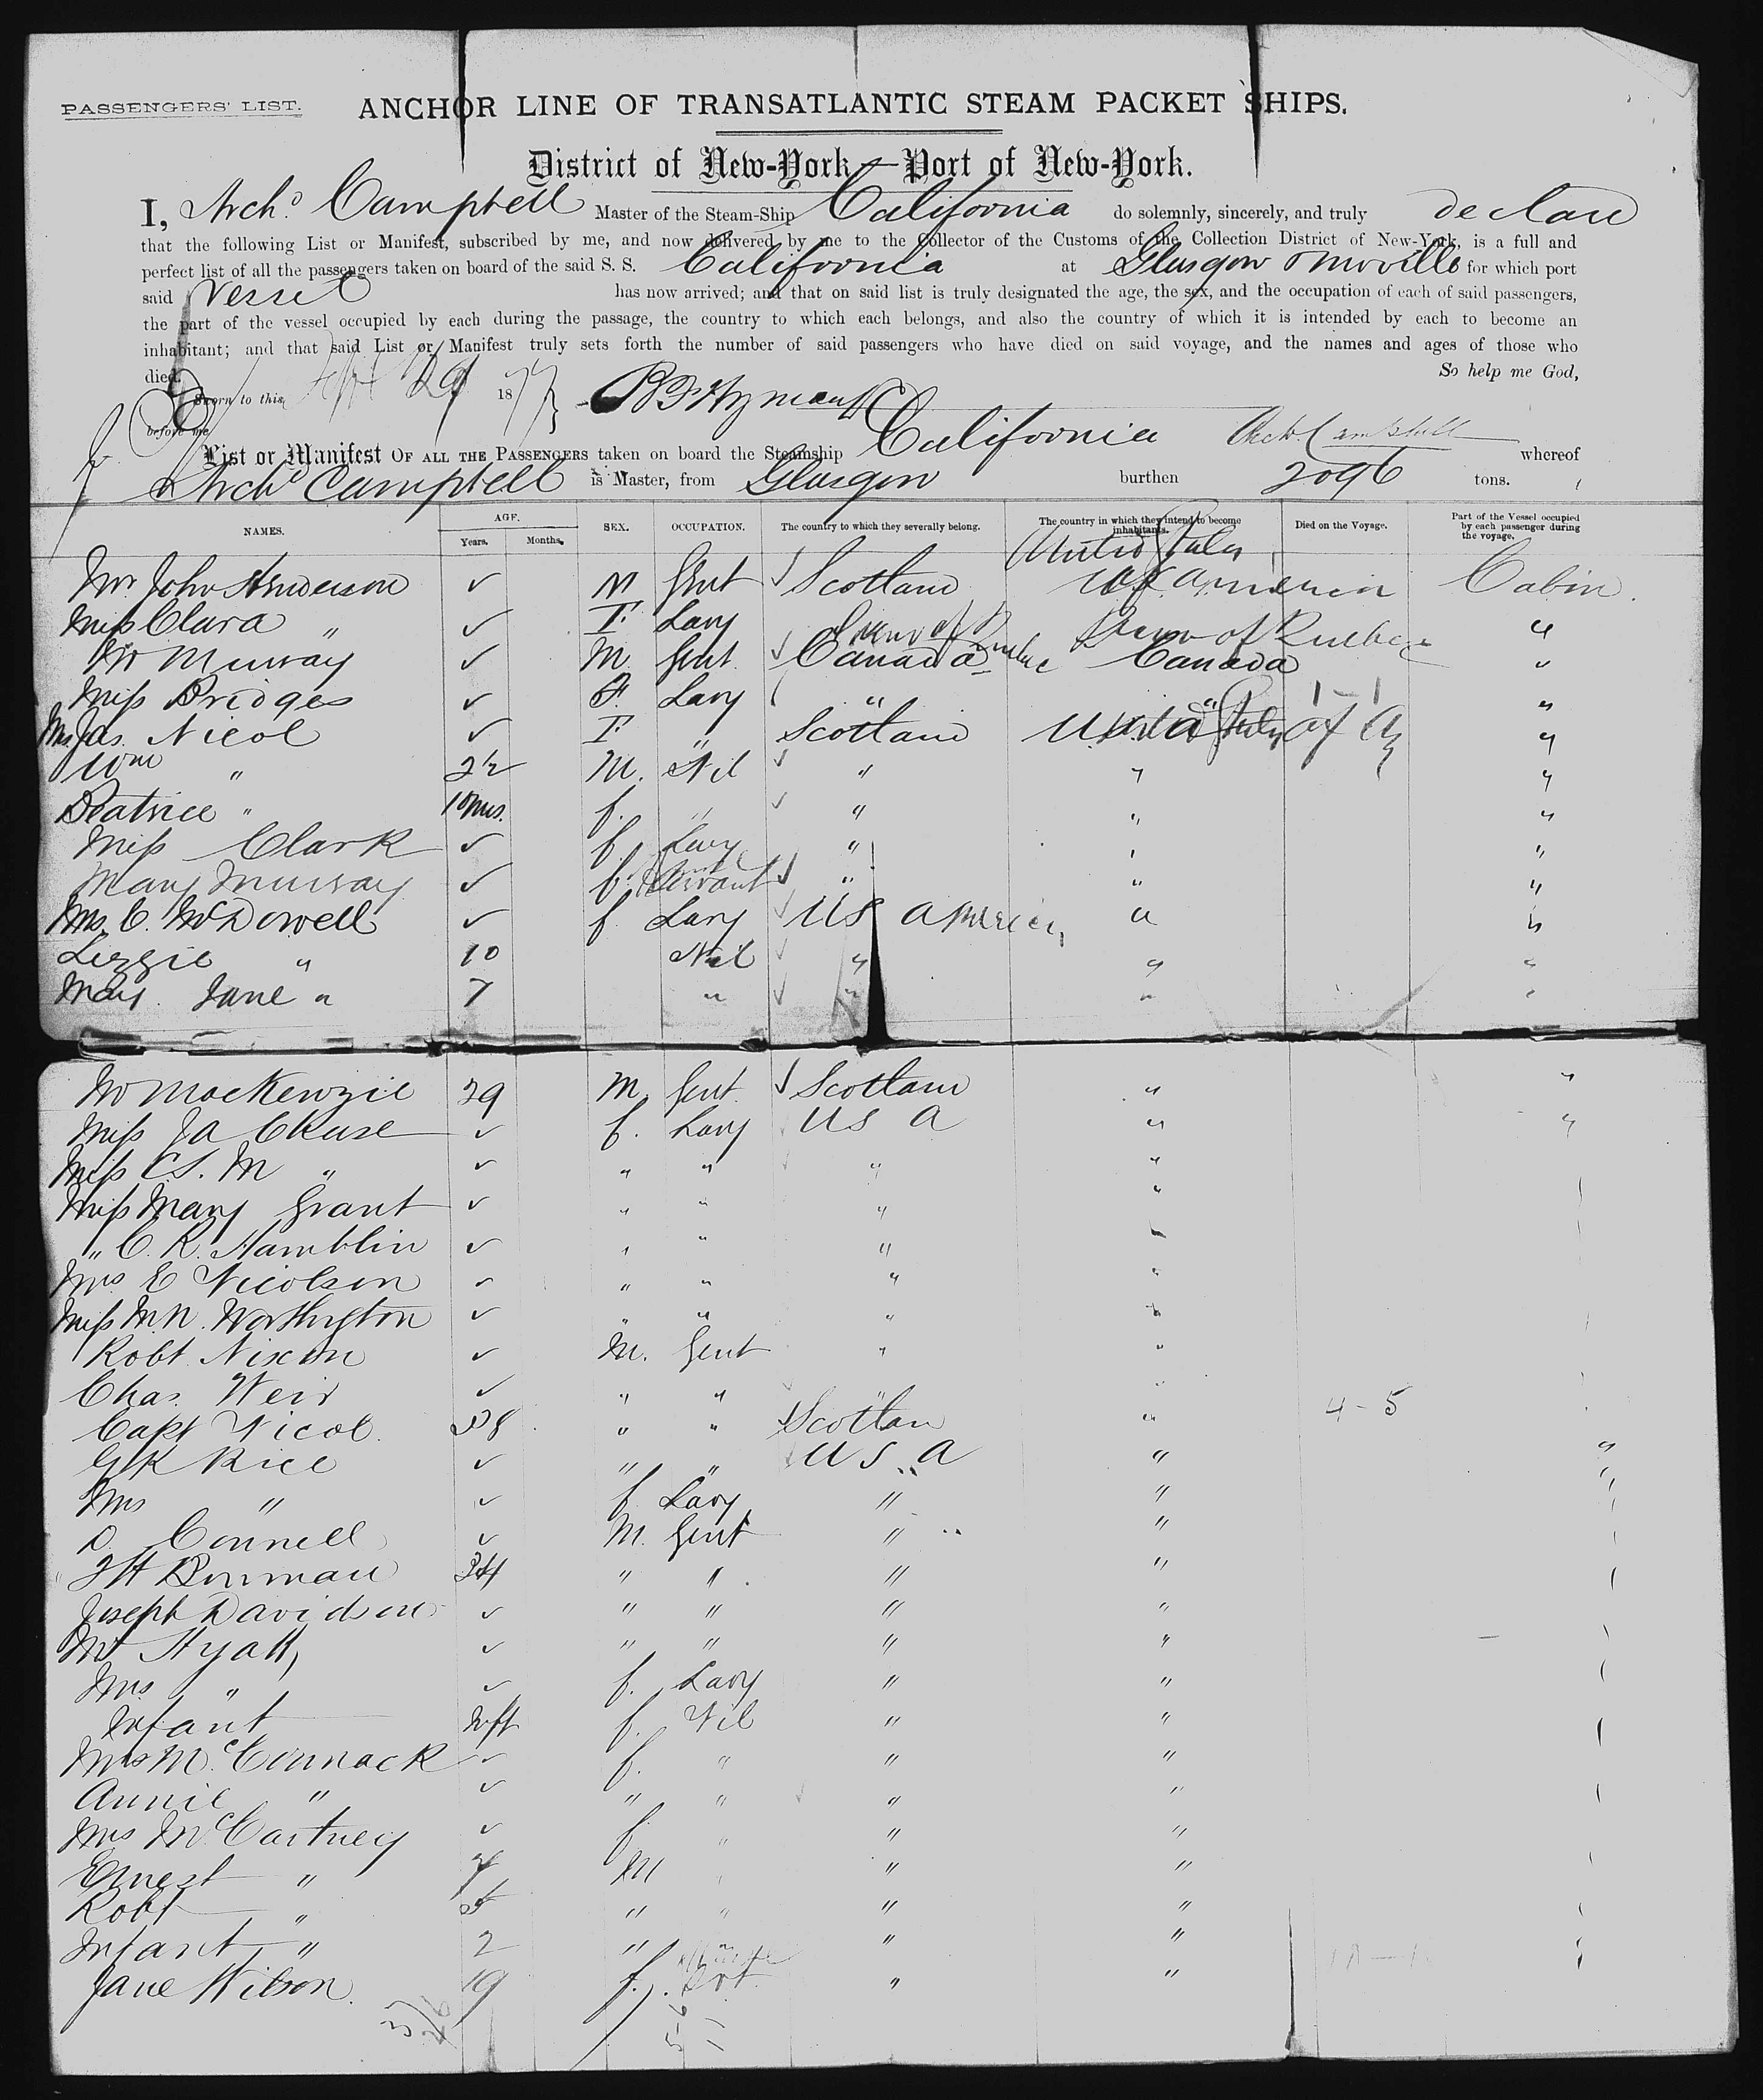 PASSENGERS' LIST. ANCHOR LINE OF TRANSATLANTIC STEAM PACKET SHIPS.
District of New-York—Port of New-York.
I, Archd Campbell Master of the Steam-Ship California do solemnly, sincerely, and truly declare
that the following List or Manifest, subscribed by me, and now delivered by me to the Collector of the Customs of the Collection District of New-York, is a full and
perfect list of all the passengers taken on board of the said S. S. California at Glasgow & Moville for which port
said Vessel has now arrived; and that on said list is truly designated the age, the sex, and the occupation of each of said passengers,
the part of the vessel occupied by each during the passage, the country to which each belongs, and also the country of which it is intended by each to become an
inhabitant; and that said List or Manifest truly sets forth the number of said passengers who have died on said voyage, and the names and ages of those who
died. So help me God,
Sworn to this Sept 29 1877
before me Archd. Campbell
List or Manifest OF ALL THE PASSENGERS taken on board the Steamship California whereof
Archd Campbell is Master, from Glasgow burthen 2096 tons.
NAMES. AGE. Years. Months. SEX. OCCUPATION. The country to which they severally belong. The country in which they intend to become inhabitants. Died on the Voyage. Part of the Vessel occupied by each passenger during the voyage.
United States
Mr John Henderson ✓ M Gent ✓ Scotland of America Cabin.
Miss Clara " ✓ F. Lady Prov of Quebec Prov of Quebec "
Mr Murray ✓ M. Gent. ✓ Canada Canada "
Miss Bridges ✓ F. Lady " " 1-1 "
Mrs. Jas. Nicol ✓ F. " Scotland United States of A "
Wm " 2½ M. Nil ✓ " " "
Beatrice " 10 mos. f. " ✓ " " "
Miss Clark ✓ f. Lady " " "
Mary Murray ✓ f. Servant ✓ " " "
Mrs. C. McDowell ✓ f Lady ✓ US America " "
Lizzie " 10 Nil ✓ " " "
Mary Jane " 7 " ✓ " " "
Mr MacKenzie 29 M. Gent. ✓ Scotland " "
Miss JA Chase ✓ f. Lady U S A " "
Miss C.S. M " ✓ " " " "
Miss Mary Grant ✓ " " " "
" C. R. Hamblin ✓ " " " "
Mrs E Nicolson ✓ " " " "
Miss M.N. Worthington ✓ " " " "
Robt. Nixon ✓ M. Gent " "
Chas. Weir ✓ " " " "
Capt Nicol. 38 " " ✓ Scotlan " 4-5
G K Rice ✓ " " U S A " "
Mrs " ✓ f Lady " " "
D. Connell ✓ M. Gent " "
J H Bowman 34 " " " "
Joseph Davidson ✓ " " " "
Mr Hyatt ✓ " " " "
Mrs. " ✓ f. Lady " "
Infant Inft f. Nil " "
Mrs McCormack ✓ f. " " "
Annie " ✓ " " " "
Mrs McCartney ✓ f " " "
Ernest " 7 M " " "
Robt " 5 " " " "
Infant " 2 " " " "
Jane Wilson. 19 f. " "